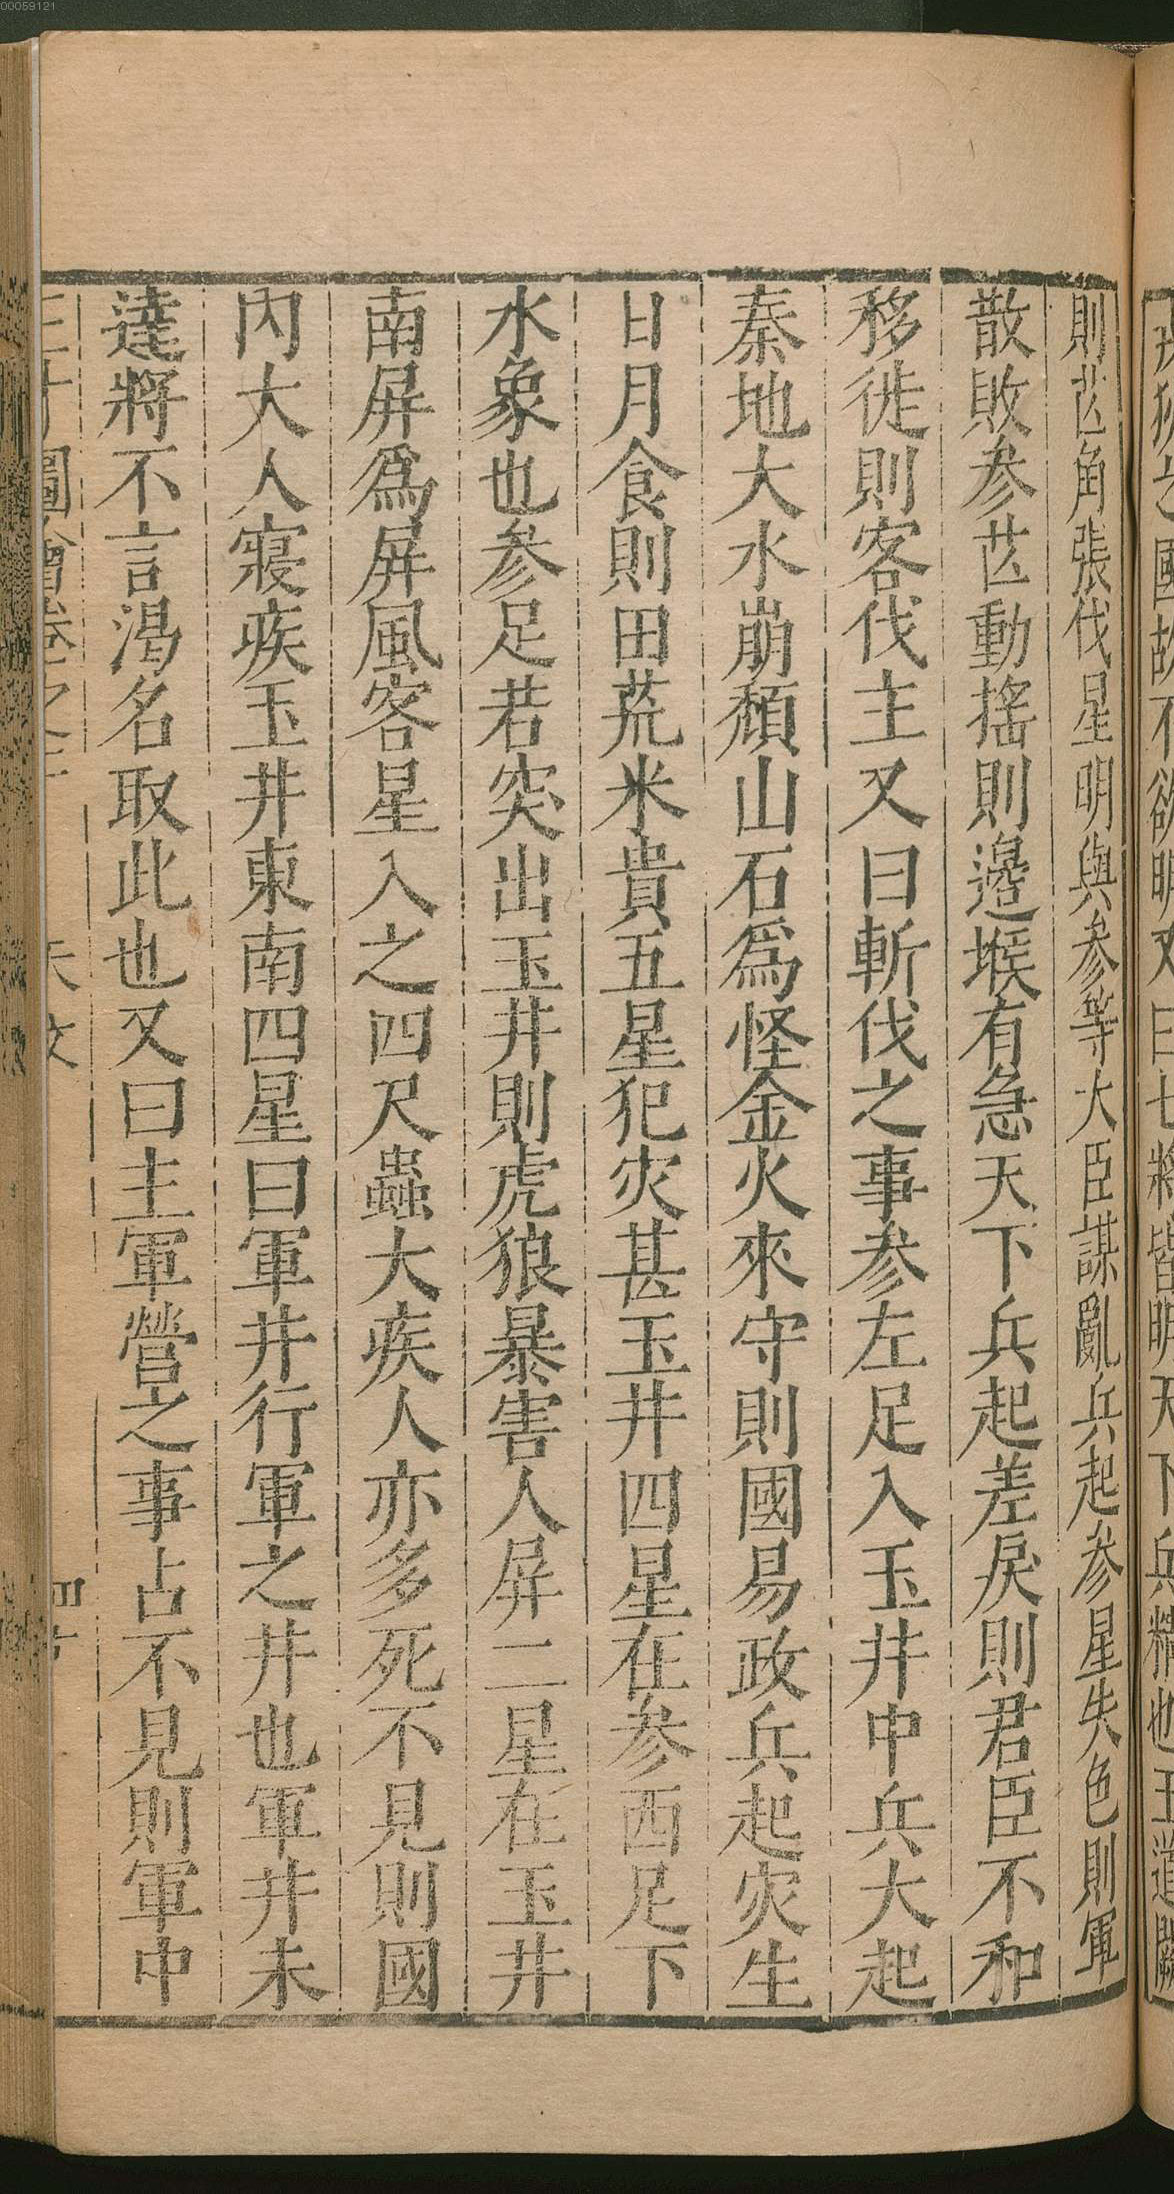 00059121
則芒角張伐星明與參等大臣謀亂兵起參星失色則軍
散敗參芒動搖則邊堠有急天下兵起差戾則君臣不和
移徙則客伐主又曰斬伐之事參左足入玉井中兵大起
秦地大水崩頹山石爲怪金火來守則國易政兵起灾生
日月食則田荒米貴五星犯灾甚玉井四星在參西足下
水象也參足若突出玉井則虎狼暴害人屏二星在玉井
南屏爲屏風客星入之四尺蟲大疾人亦多死不見則國
內大人寢疾玉井東南四星曰軍井行軍之井也軍井未
達將不言渴名取此也又曰主軍營之事占不見則軍中